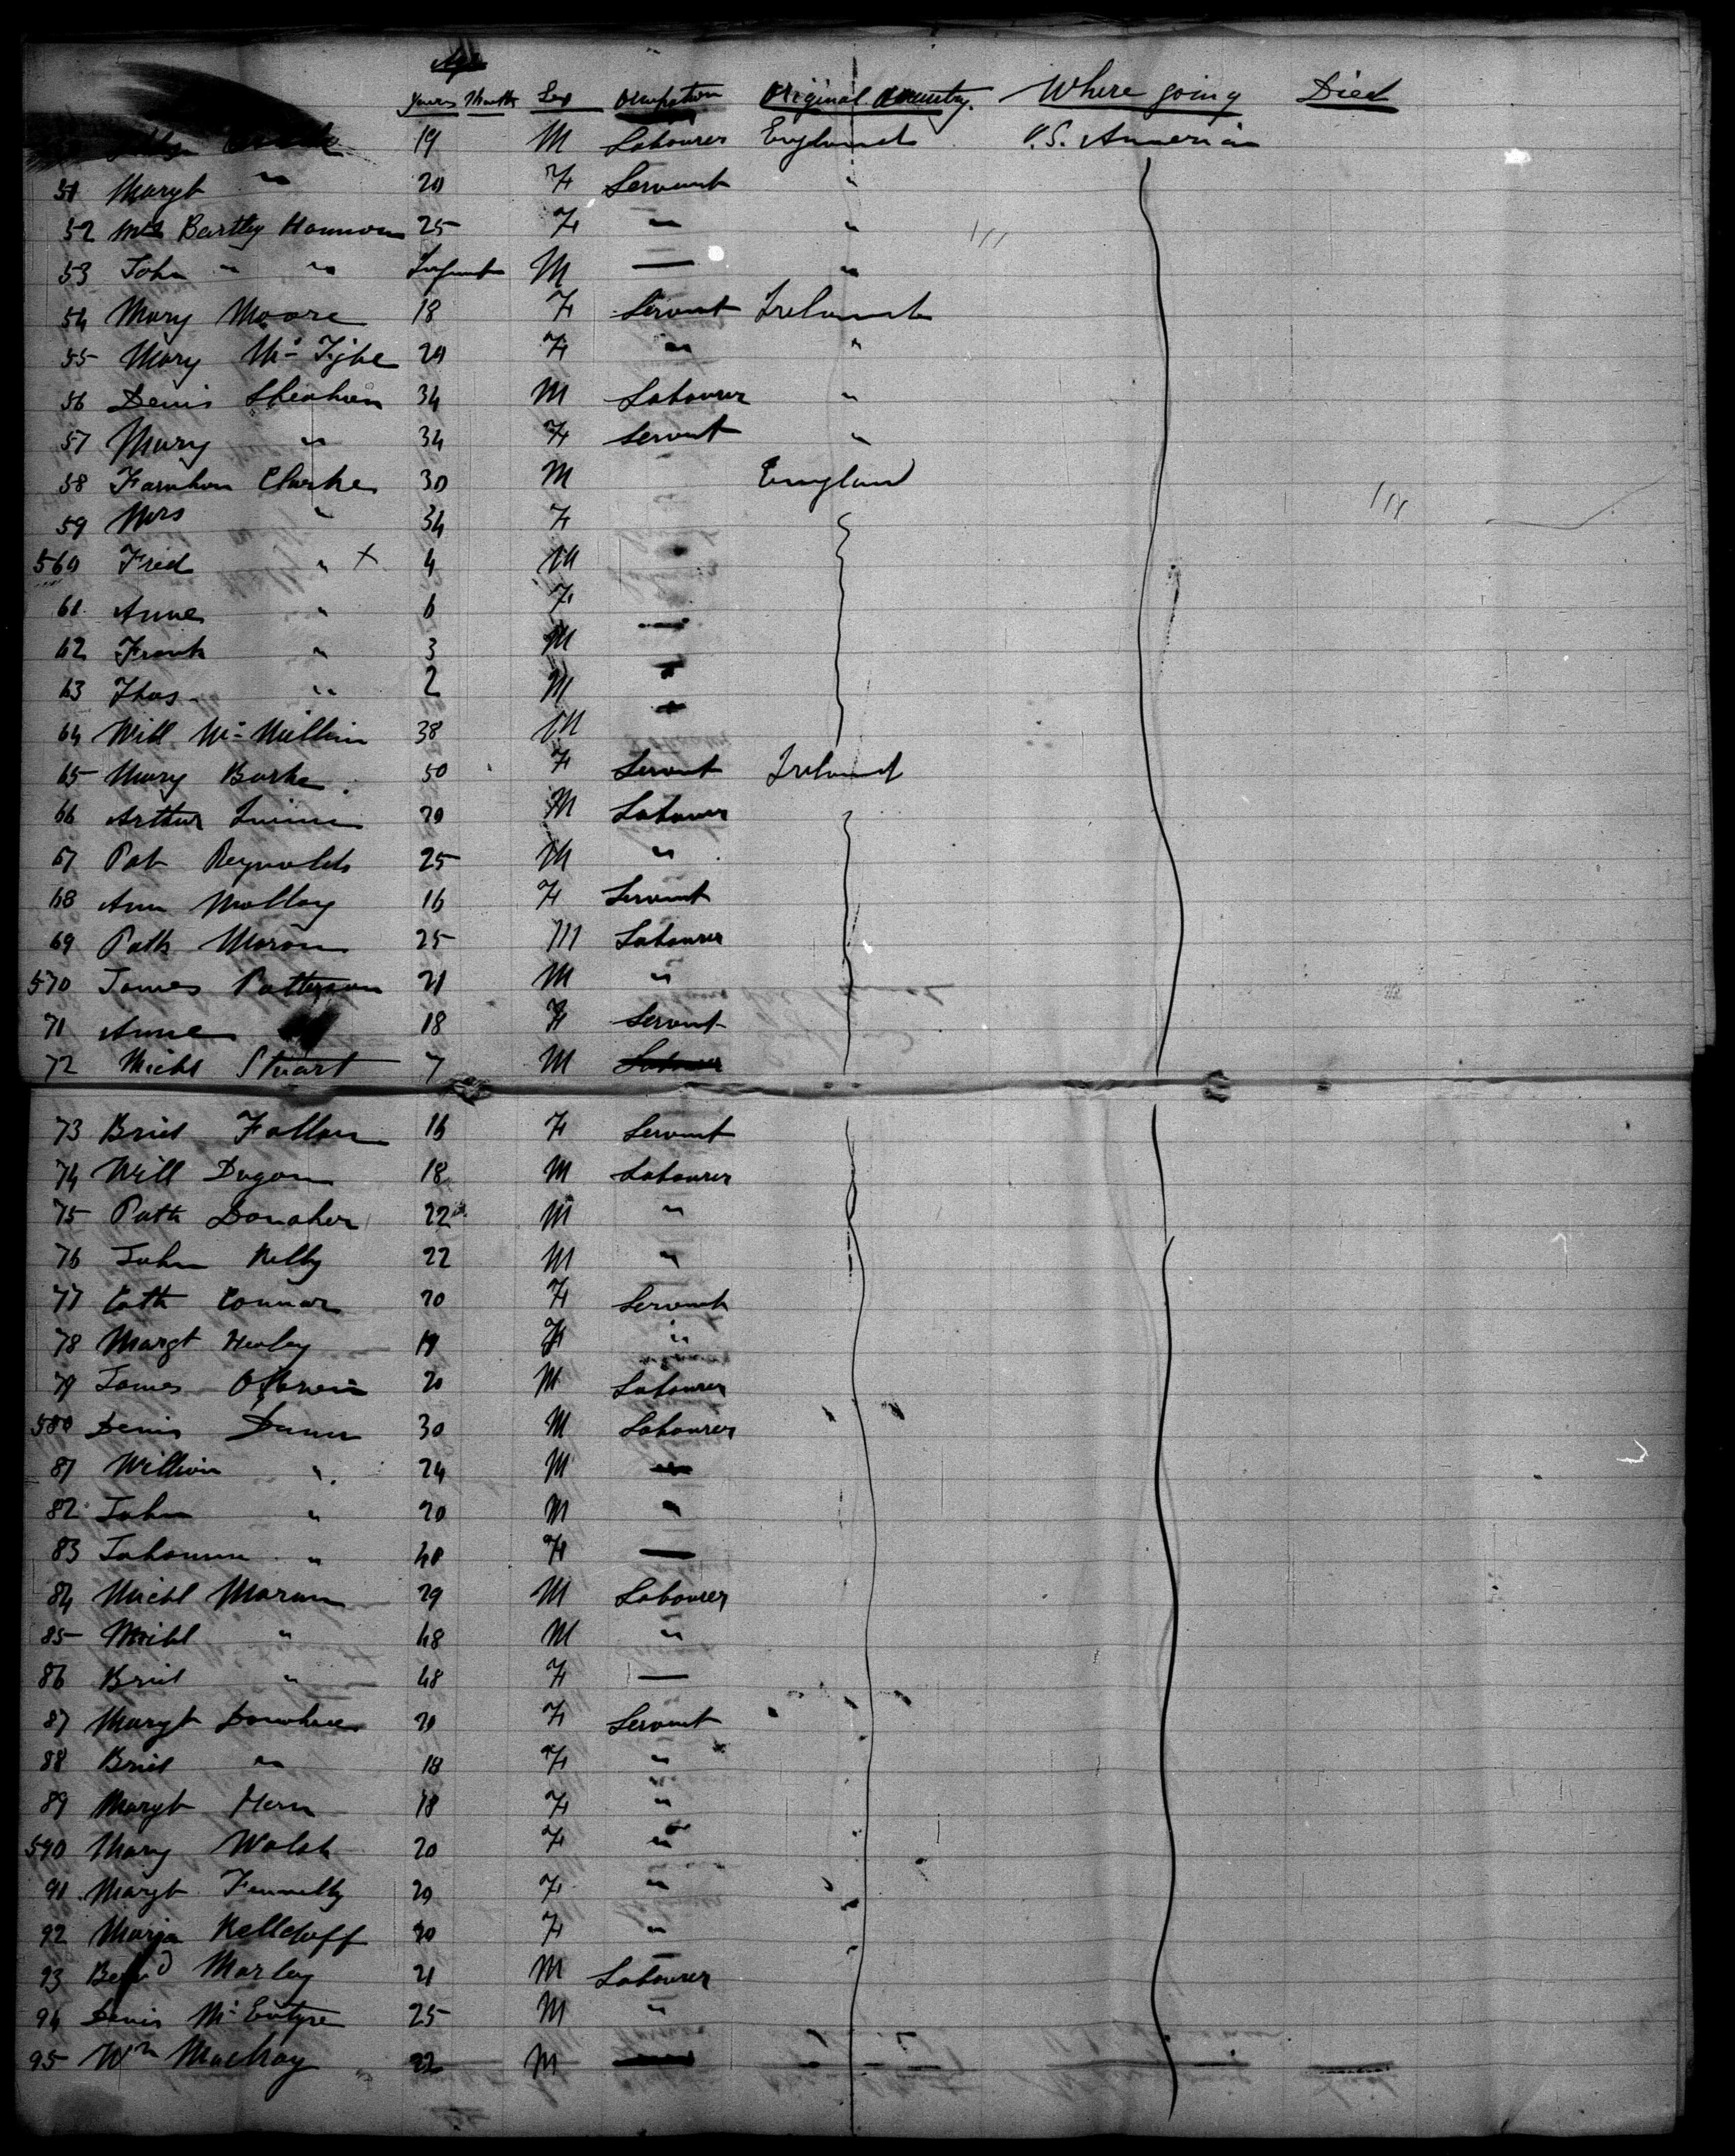 Age
Years Months Sex Occupation Original Country. Where going Died
19 M Labourer England U.S. America
51 Margt " 20 F Servant "
52 Mrs Bartley Hannon 25 F " "
53 John " " Infant M — "
54 Mary Moore 18 F Servant Ireland
55 Mary McTighe 20 F " "
56 Denis Sheahan 34 M Labourer "
57 Mary " 34 F Servant "
58 Clarke 30 M England
59 Mrs " 34 F
560 Fred " x 4 M
61 Anne " 6 F —
62 Frank " 3 M
63 Thos " 2 M
64 Will 38 M
65 Mary Burke 50 F Servant Ireland
66 Arthur 20 M Labourer
67 Pat Reynolds 25 M "
68 Ann Molloy 16 F Servant
69 Patk Moran 25 M Labourer
570 James Patterson 21 M "
71 Anne 18 F Servant
72 Michl Stuart 7 M Labourer
73 Brid Fallon 16 F Servant
74 Will Dugan 18 M Labourer
75 Patk Donaher 22 M "
76 John Kelly 22 M "
77 Cath Connor 20 F Servant
78 Margt Healey 19 F "
79 James O'Brien 20 M Labourer
580 Denis 30 M Labourer
81 William " 24 M
82 John " 20 M "
83 Johanna " 40 F —
84 Michl Moran 29 M Labourer
85 Michl " 48 M "
86 Brid " 48 F —
87 Margt Donohue 20 F Servant
88 Brid " 18 F "
89 Margt Hern 18 F "
590 Mary Walsh 20 F "
91 Margt Fennelly 20 F "
92 Maria Kellduff 20 F "
93 Bernd Marley 21 M Labourer
94 Denis McEntyre 25 M "
95 Wm Mackay 22 M